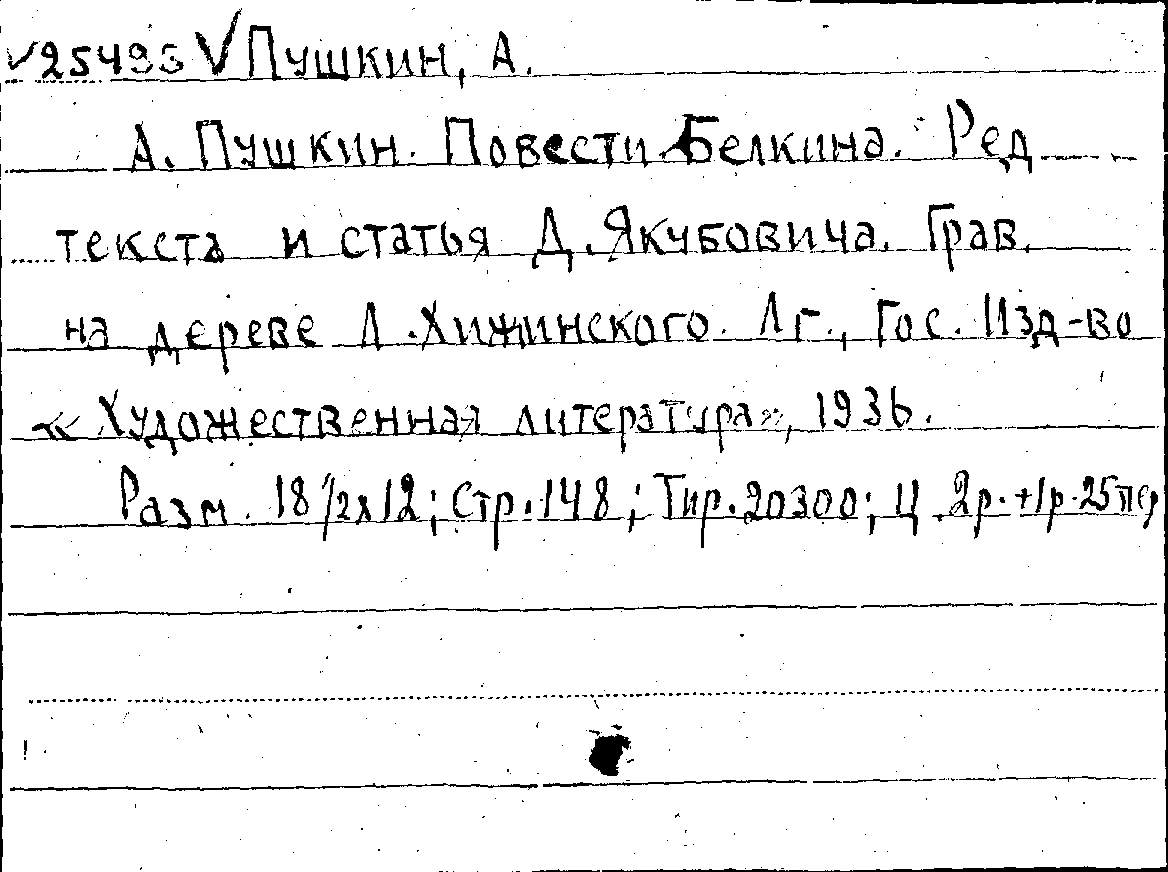 25493 Пушкин, А.
А. Пушкин. Повести Белкина. Ред
текста и статья Д. Якубовича. Грав.
на дереве Л. Хижинского. Лг., Гос. Изд-во
«Художественная литература», 1936.
Разм. 18 1/2х12; Стр. 148; Тир. 20300; Ц. 2р.+1р.25пер